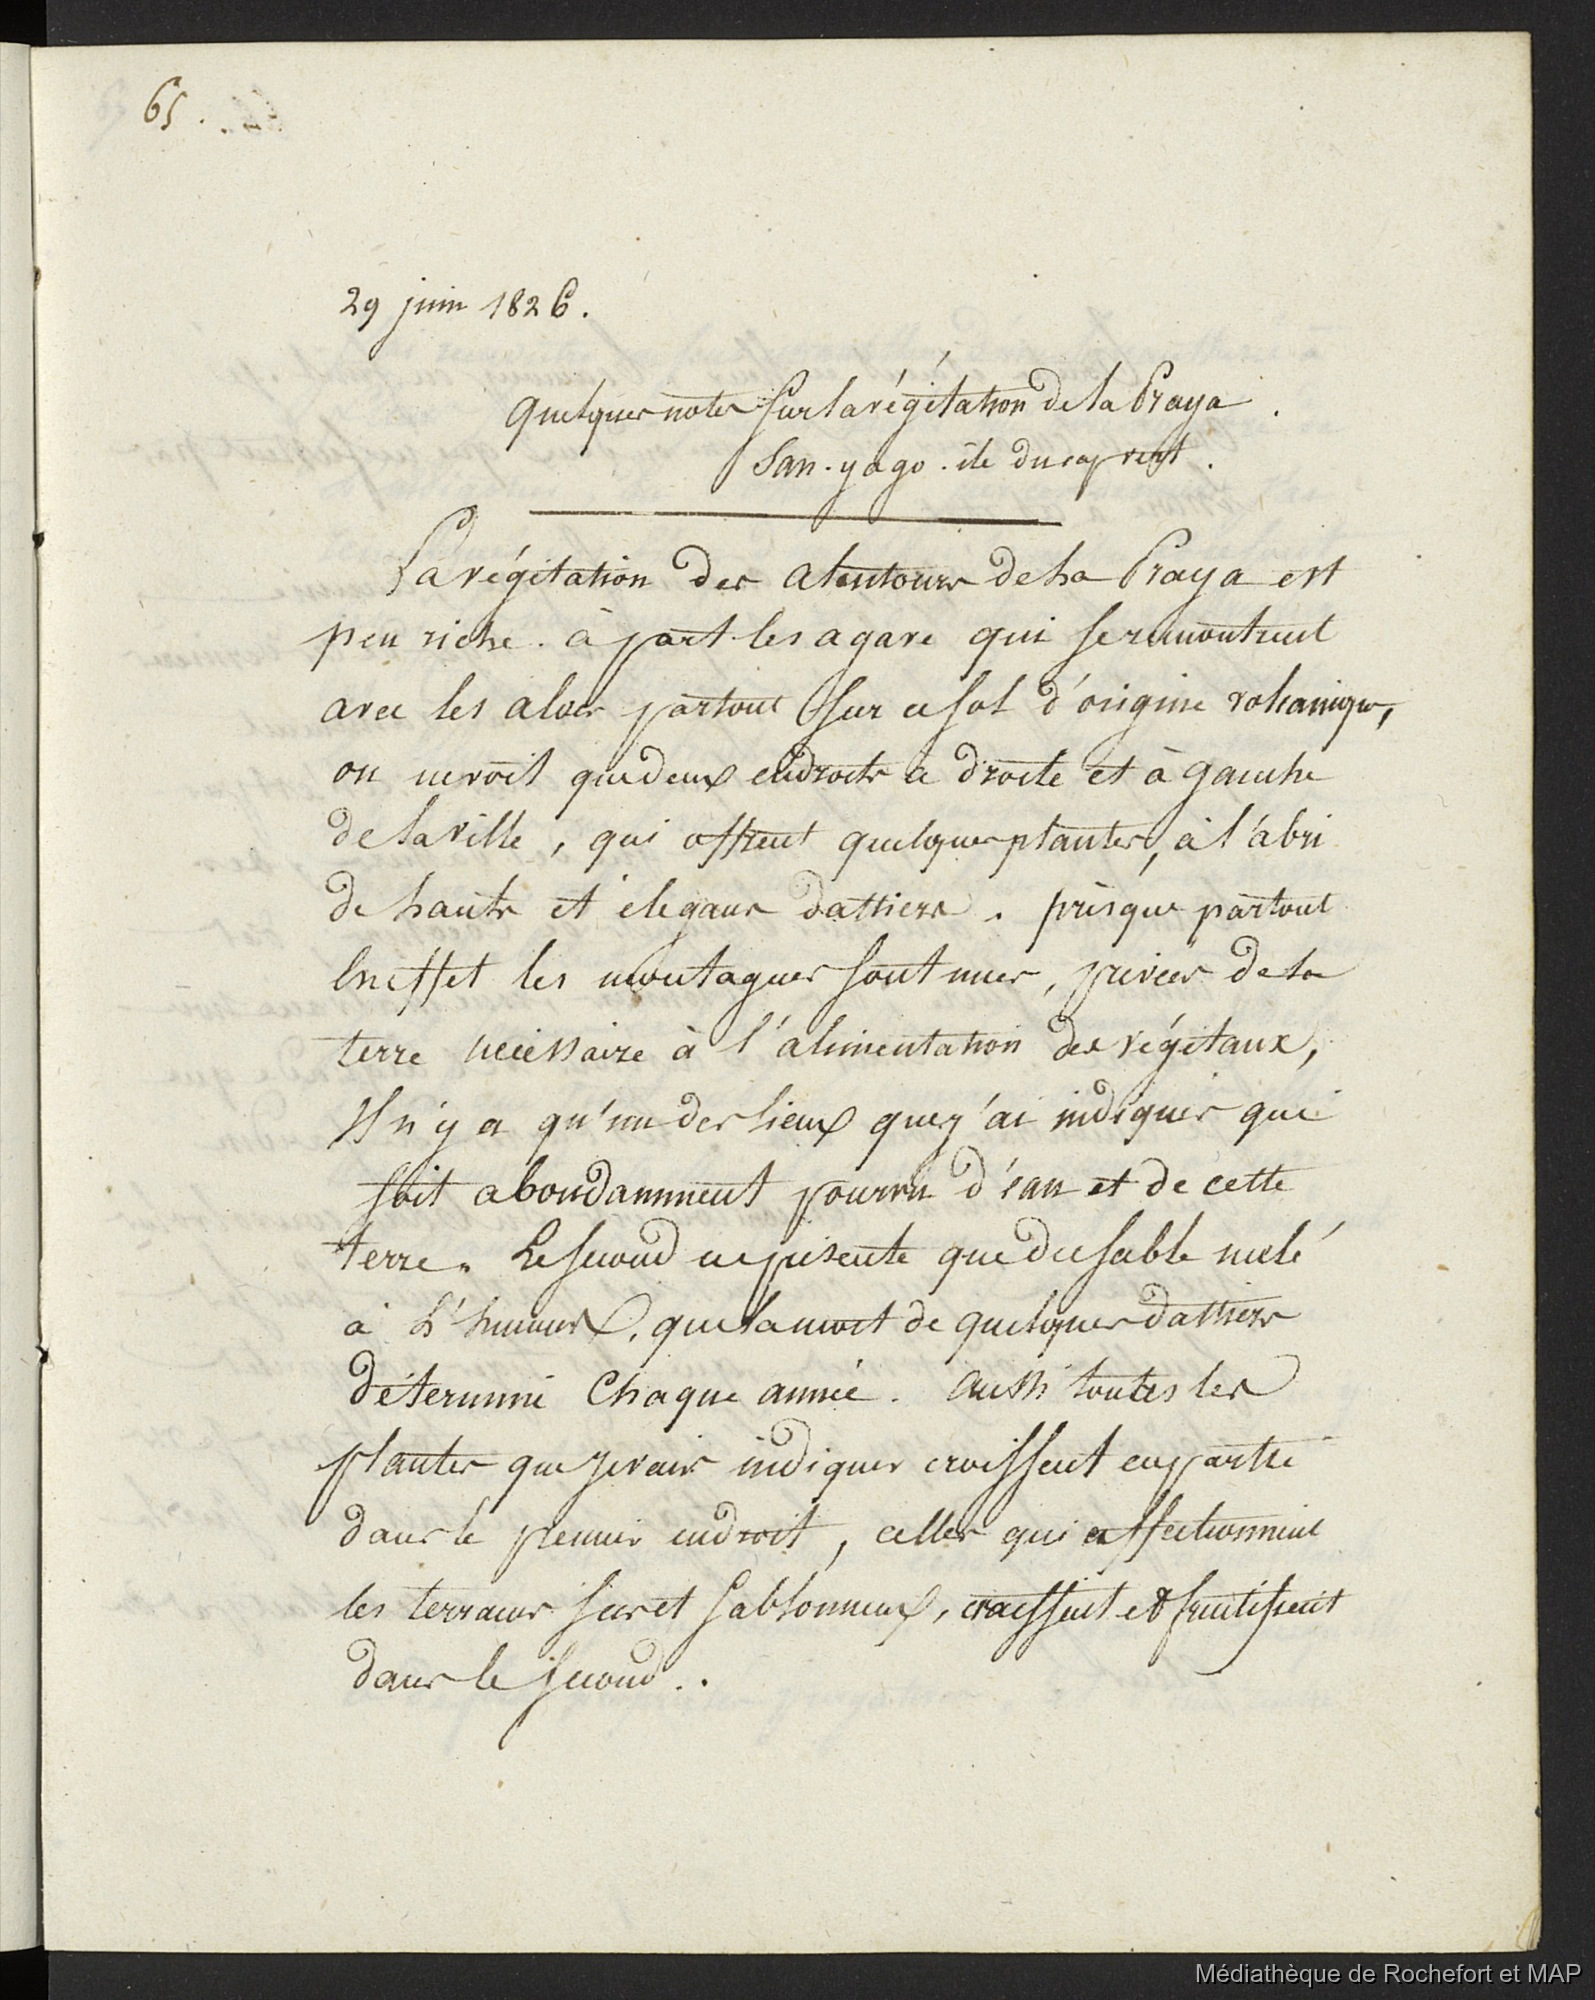 65.
29 juin 1826.
quelques notes sur la végétation de la Praya.
San-yago. île du cap vert.
La végétation des alentours de la Praya est
peu riche. à part les agave qui se remontrent
avec les aloës partout sur ce sol d'origine volcanique,
on ne voit que deux endroits à droite et à gauche
de la ville, qui offrent quelques plantes, à l'abri
de hauts et élegans dattiers. présque partout
en effet les montagnes sont nues, privées de la
terre nécessaire à l'alimentation des végétaux,
Il n'y a qu'un des lieux que j'ai indiqués qui
soit abondamment pourvu d'eau et de cette
terre. Le second ne présente que du sable melé
à l'humus, que la mort de quelques dattiers
détermine chaque année. aussi toutes les
plantes que je vais indiquer croissent en partie
dans le premier endroit, celles qui affectionnent
les terrains secs et sablonneux, croissent et fructifient
dans le second..
Médiathèque de Rochefort et MAP